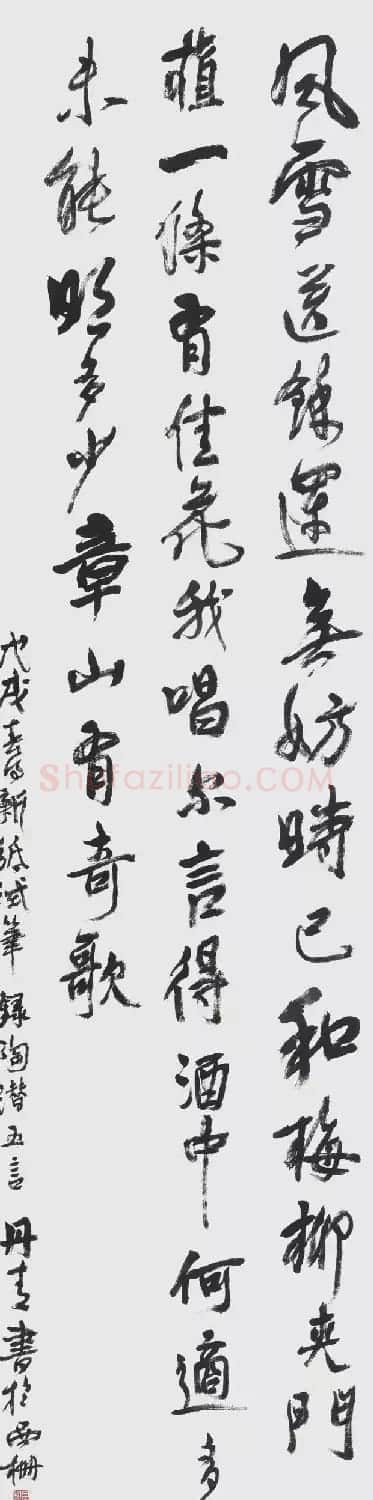 風雪送餘運無妨時已和梅柳夾門
植一條有佳花我唱尔言得酒中何適多
未能明多少章山有奇歌
戊戌春日新紙試筆 錄陶潛五言 丹青書於西柵
Shufaziliao.COM